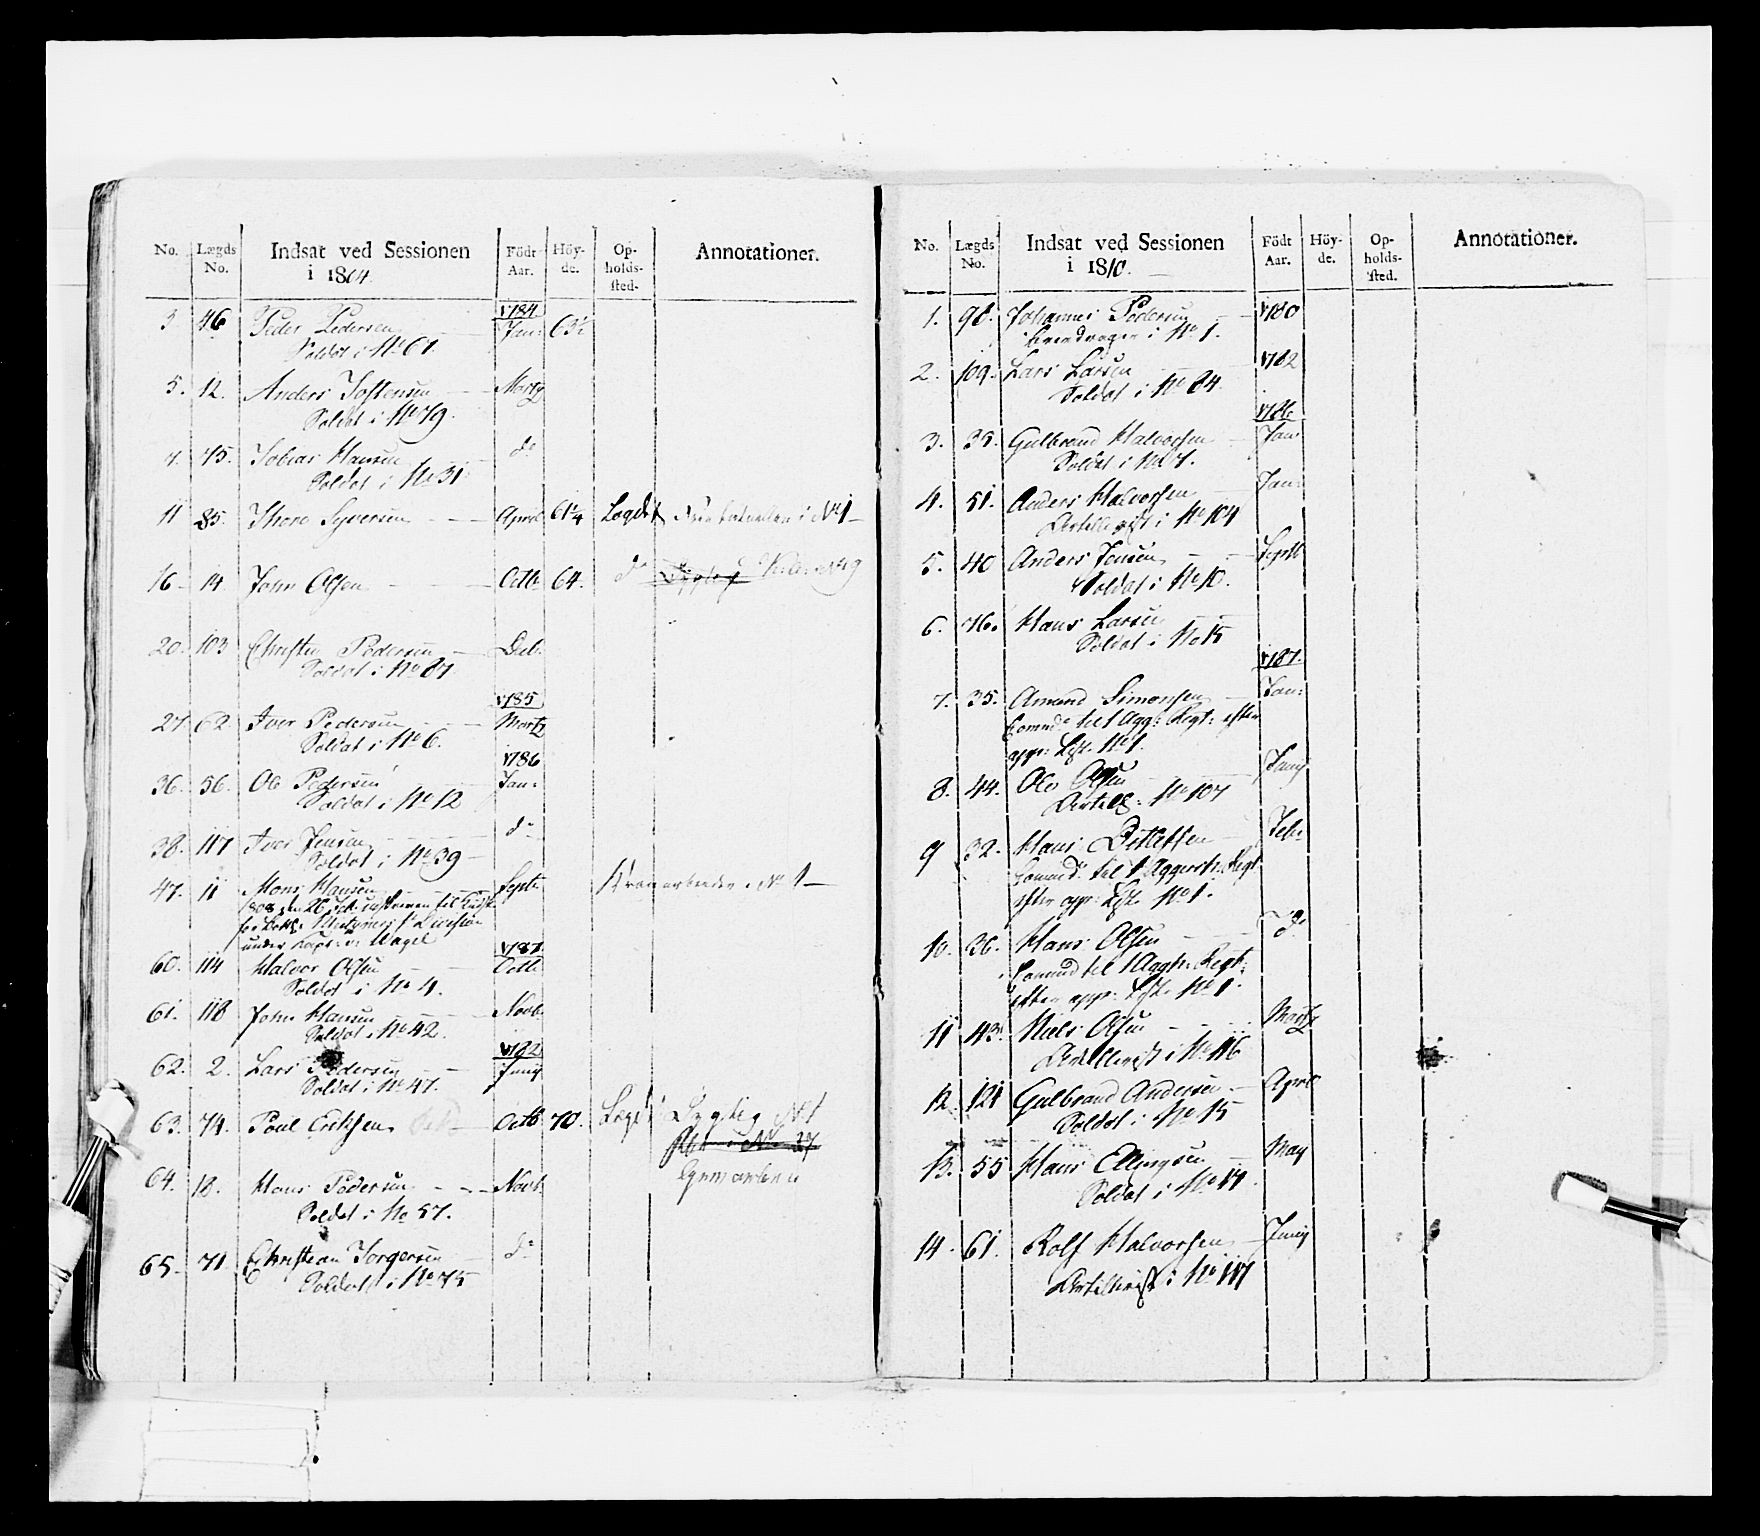 No. Lægds No. Indsat ved Sessionen i 1804. Födt Aar. Höyde. Opholdssted. Annotationer.
3 46 Peder Pedersen 1784 Jan: 63½
Soldat i No 61.
5. 12. Anders Jostensen Martz
Soldat i No 79.
7. 75. Tobias Hansen do
Soldat i No 31.
11 85. Thore Syversen April 61¼ Lægdet i No 1
16 14 John Olsen Octb. 64. do No 9
20. 103 Christen Pedersen Decb.
Soldat i No 87
1785
27. 62. Iver Pedersen Martz
Soldat i No 6.
1786
36. 56. Ole Pedersen Jan:
Soldat i No 12
38. 117 Iver Jensen do
Soldat i No 39
47. 11 Mons Hansen Septr. No 1
1808 den 26
under Capt: v: Wagel
1781
60. 114 Halvor Olsen Octb.
Soldat i No 4.
61. 118 John Hansen Novb.
Soldat i No 42.
1782
62. 2. Lars Pedersen Juny
Soldat i No 47.
63. 74. Poul Eriksen Octb 70. Lægdet Dygtig No 1
64. 18. Hans Pedersen Novb.
Soldat i No 57.
65. 71 Christian Torgersen do
Soldat i No 75
No. Lægds No. Indsat ved Sessionen i 1810. Födt Aar. Höyde. Opholdssted. Annotationer.
1. 98. Johannes Pedersen 1780
i No 1.
2. 109. Lars Larsen 1782
Soldat i No 84.
1786
3. 35. Gulbrand Halvorsen Jan:
Soldat i No 7.
4. 51. Anders Halvorsen Jan:
Artillerist i No 104
5. 40 Anders Jensen Septb
Soldat i No 10.
6. 76. Hans Larsen
Soldat i No 15
1787.
7. 35. Amund Simonsen Jan:
til 1 Agg: Regt: efter
No 1.
8. 44. Ole Olsen Juny
Artill: No 107
9 32. Hans Ditlefsen Febr
til 1 Aggersh: Regt
efter No 1.
10. 36. Hans Olsen do
til 1 Aggh: Regt:
efter No 1.
11 43. Niels Olsen Martz
Artillerist i No 116
12. 121 Gulbrand Andersen April
Soldat i No 15
13. 55 Hans Ellingsen May
Soldat i No 14.
14. 61. Rolf Halvorsen Juny
Artillerist i No 117